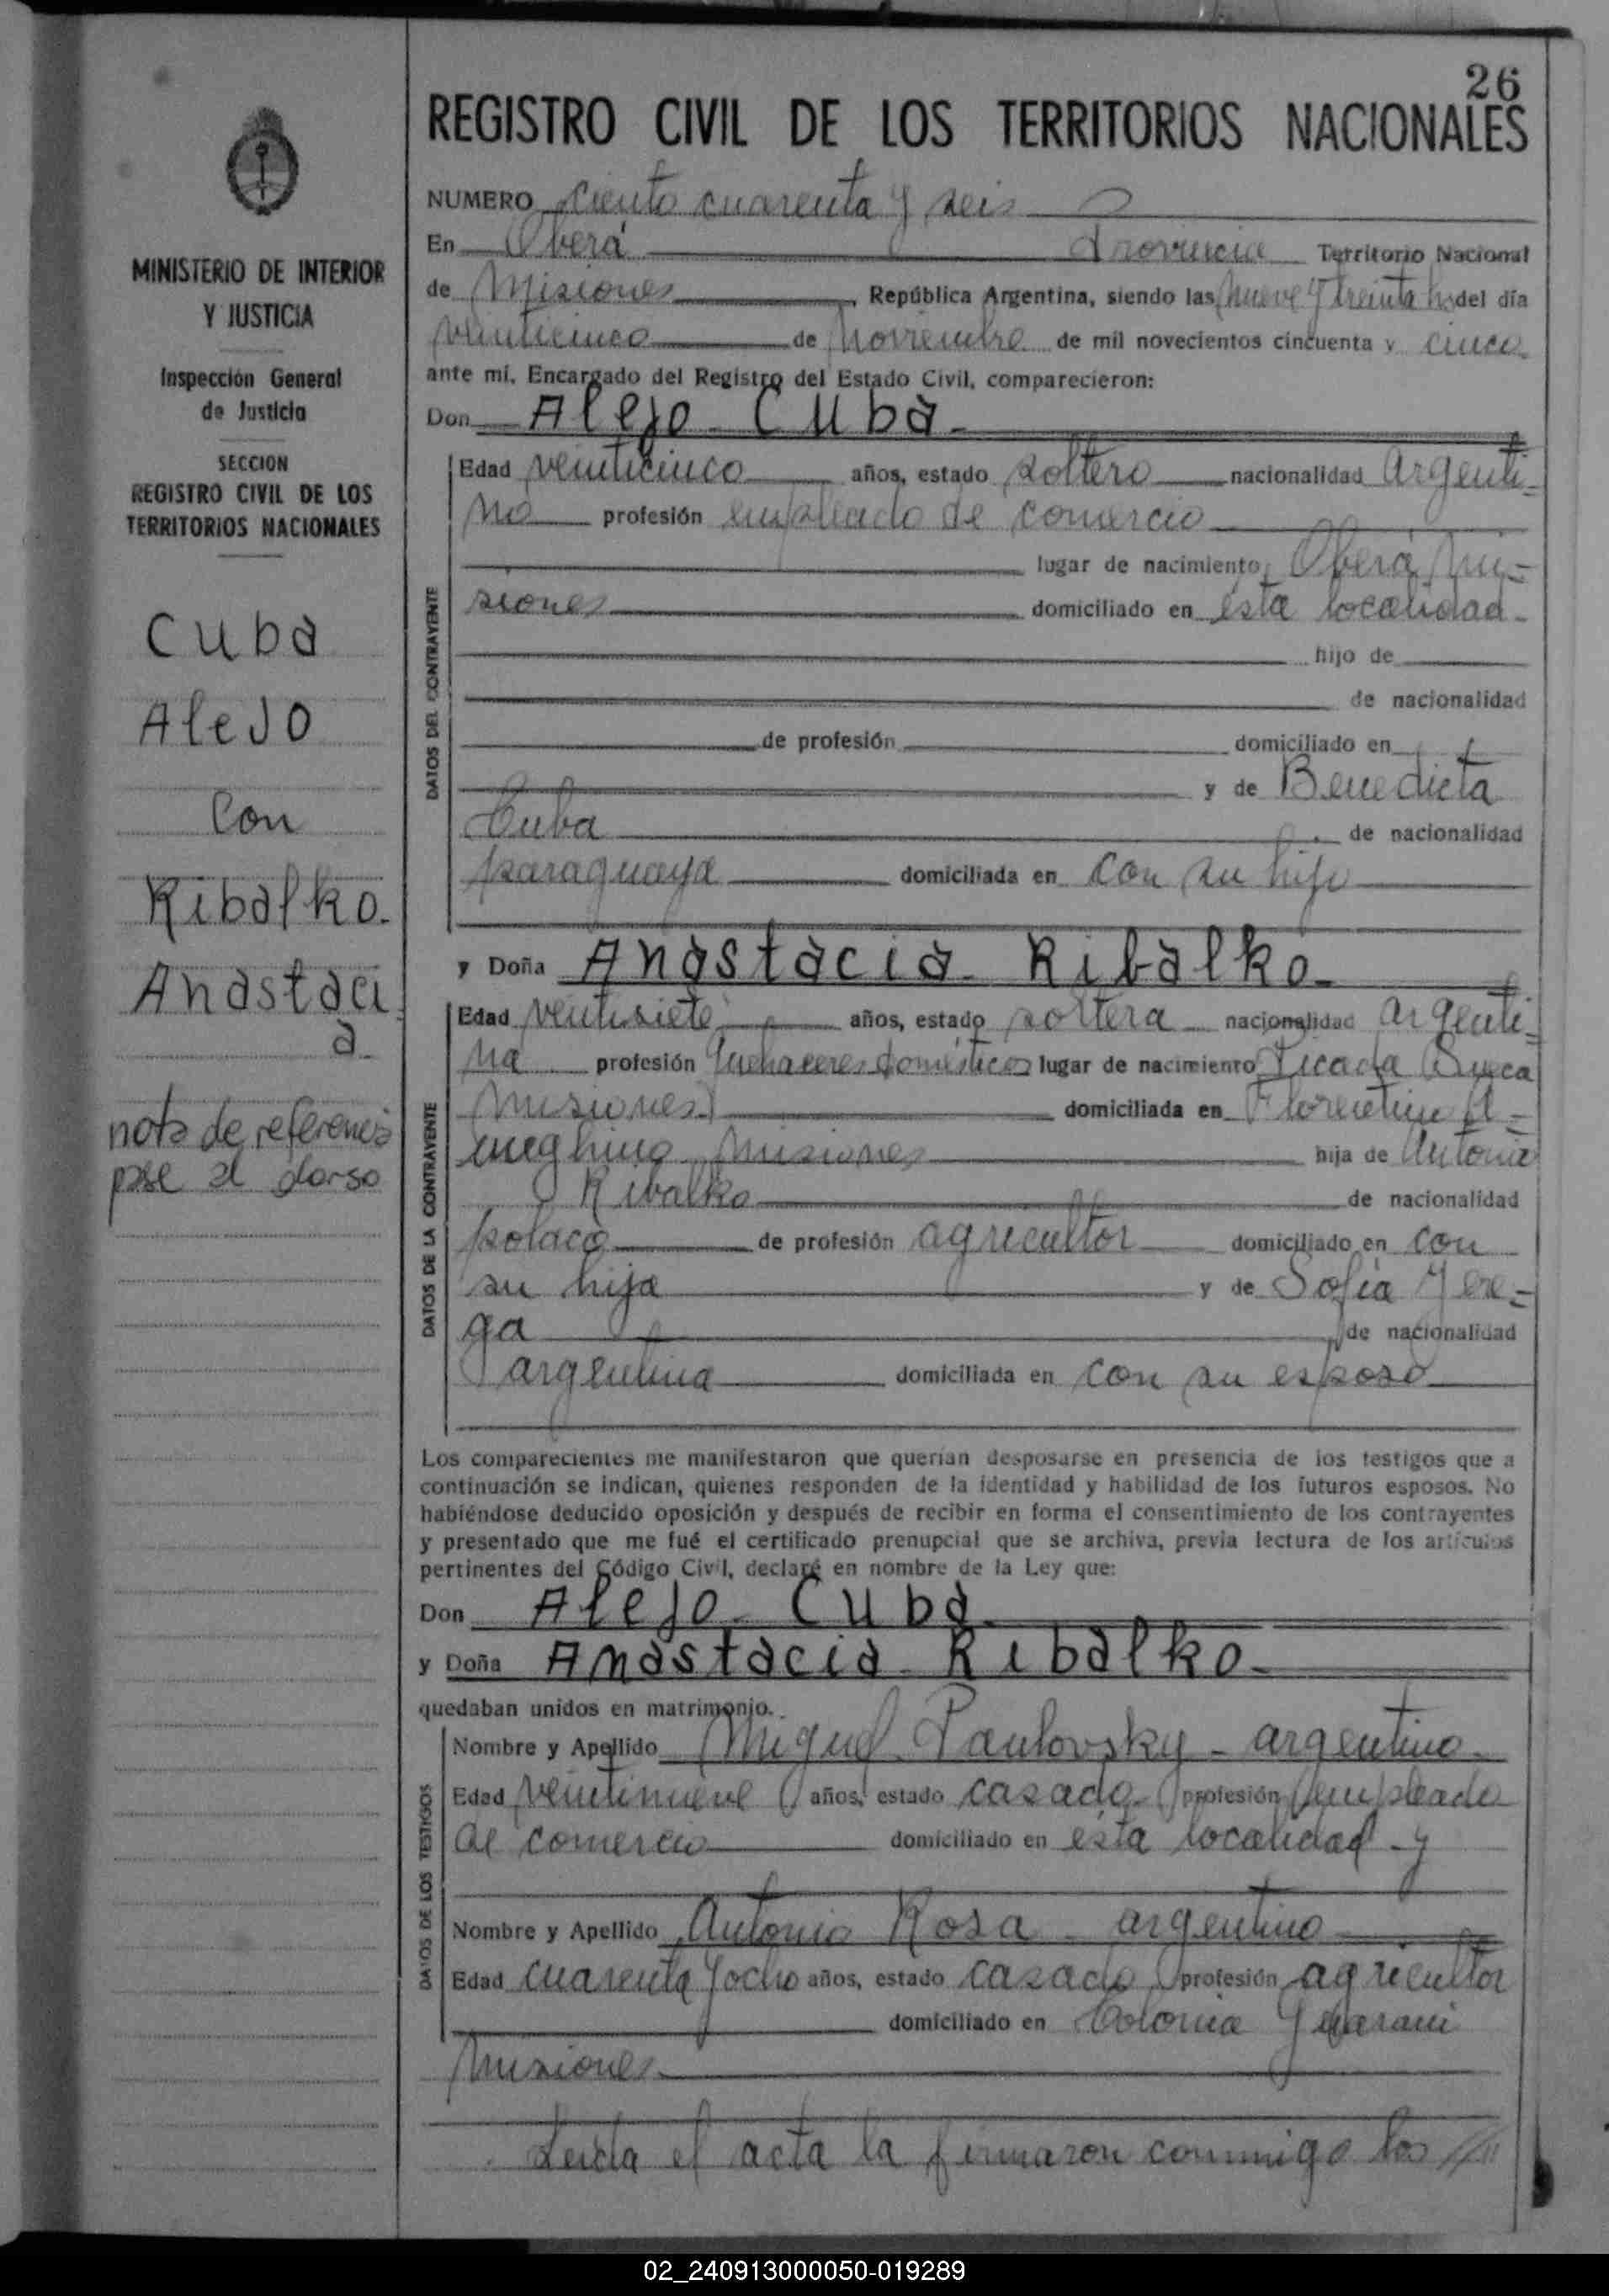 26
REGISTRO CIVIL DE LOS TERRITORIOS NACIONALES
NUMERO ciento cuarenta y seis
En Oberá Provincia Territorio Nacional
de Misiones, República Argentina, siendo las nueve y treinta hs del día
veinticinco de Noviembre de mil novecientos cincuenta y cinco
ante mí, Encargado del Registro del Estado Civil, comparecieron:
Don Alejo Cuba
Edad veinticinco años, estado soltero nacionalidad argenti-
no profesión empleado de comercio
lugar de nacimiento Oberá Mi-
siones domiciliado en esta localidad
hijo de
de nacionalidad
de profesión domiciliado en
y de Benedicta
Cuba de nacionalidad
paraguaya domiciliada en con su hijo
y Doña Anastacia Ribalko
Edad ventisiete años, estado soltera nacionalidad argenti-
na profesión Quehaceres domésticos lugar de nacimiento Picada Sueca
Misiones) domiciliada en Florentino A-
meghino Misiones hija de Antonio
Ribalko de nacionalidad
polaco de profesión agricultor domiciliado en con
su hija y de Sofía Jere-
ga de nacionalidad
argentina domiciliada en con su esposo
Los comparecientes me manifestaron que querían desposarse en presencia de los testigos que a
continuación se indican, quienes responden de la identidad y habilidad de los futuros esposos. No
habiéndose deducido oposición y después de recibir en forma el consentimiento de los contrayentes
y presentado que me fué el certificado prenupcial que se archiva, previa lectura de los artículos
pertinentes del Código Civil, declaré en nombre de la Ley que:
Don Alejo Cuba
y Doña Anastacia Ribalko
quedaban unidos en matrimonio.
Nombre y Apellido Miguel Paulovsky - argentino
Edad veintinueve años, estado casado profesión empleado
de comercio domiciliado en esta localidad y
Nombre y Apellido Antonio Rosa argentino
Edad cuarenta y ocho años, estado casado profesión agricultor
domiciliado en Colonia Guarani
Misiones
Leida el acta la firmaron conmigo los
DATOS DEL CONTRAYENTE
DATOS DE LA CONTRAYENTE
DATOS DE LOS TESTIGOS
MINISTERIO DE INTERIOR
Y JUSTICIA
Inspección General
de Justicia
SECCION
REGISTRO CIVIL DE LOS
TERRITORIOS NACIONALES
Cuba
Alejo
Con
Ribalko.
Anastaci
a
nota de referencia
pase al dorso
02_240913000050-019289